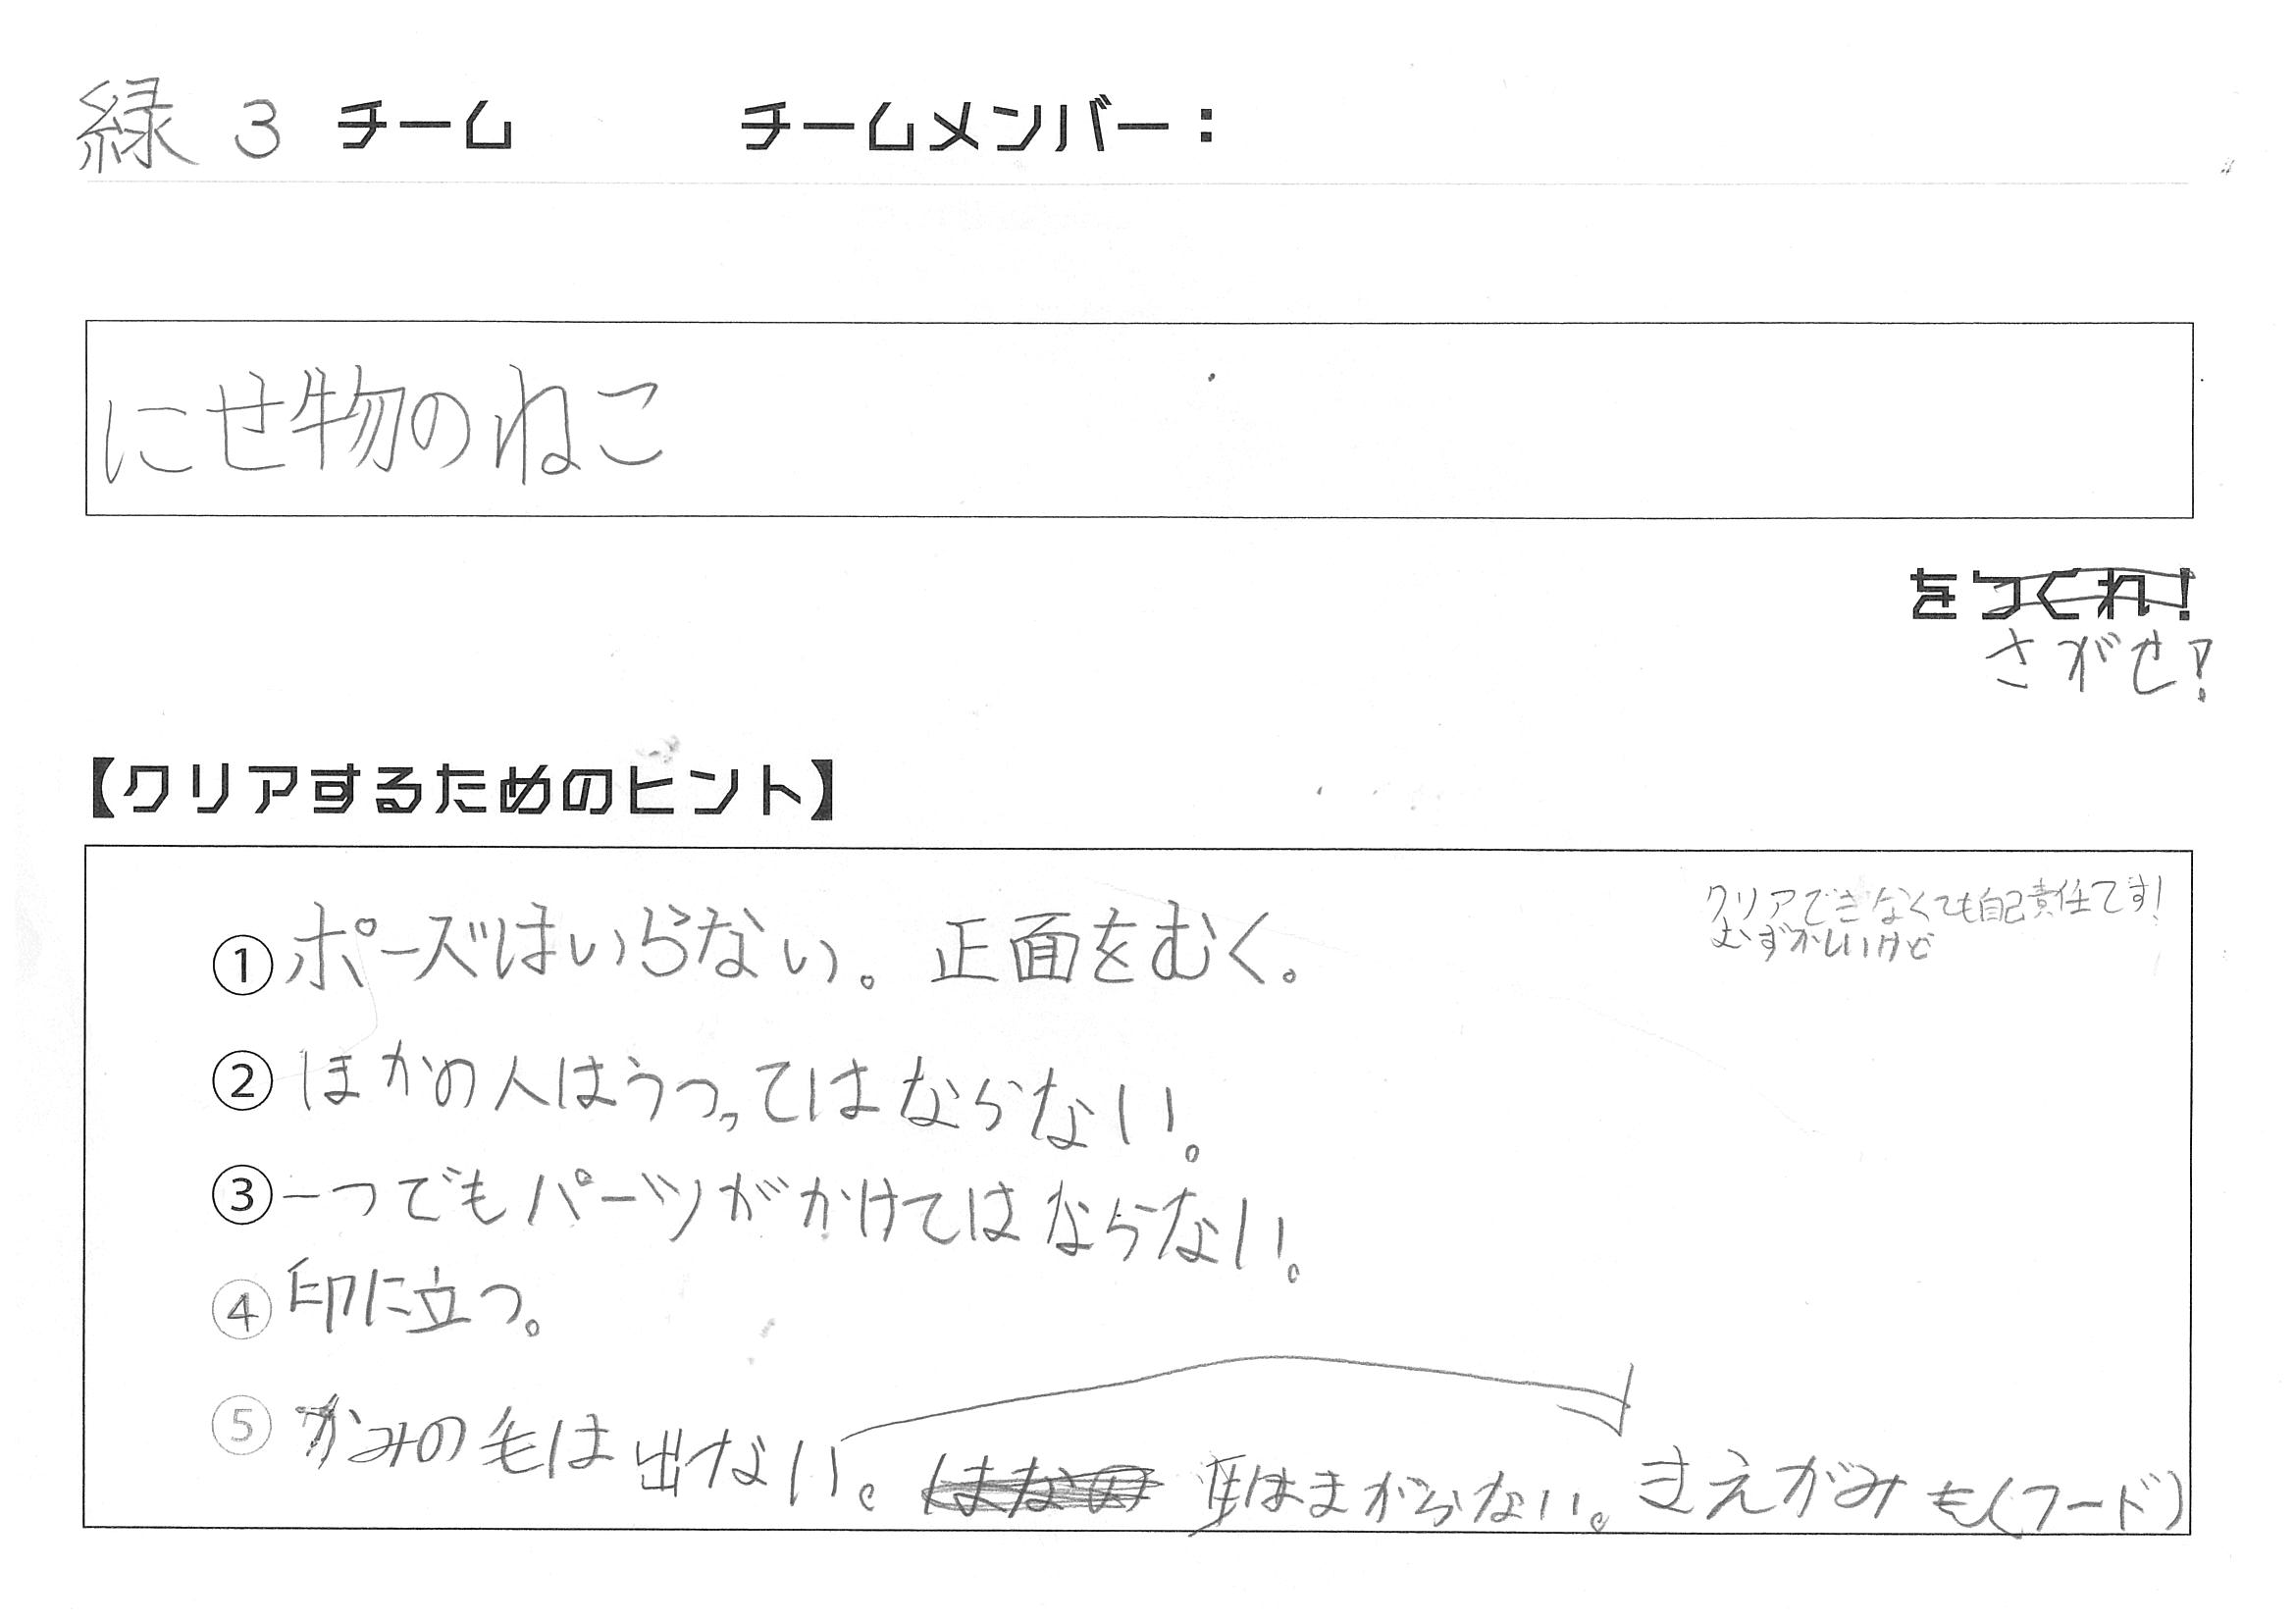 緑 3 チーム チームメンバー：
にせ物のねこ
をつくれ！
さがせ！
【クリアするためのヒント】
クリアできなくても自己責任です！
むずかしいけど
①ポーズはいらない。正面をむく。
②ほかの人はうつってはならない。
③一つでもパーツがかけてはならない。
④印に立つ。
⑤かみの毛は出ない。はまがらない。まえがみも(フード)